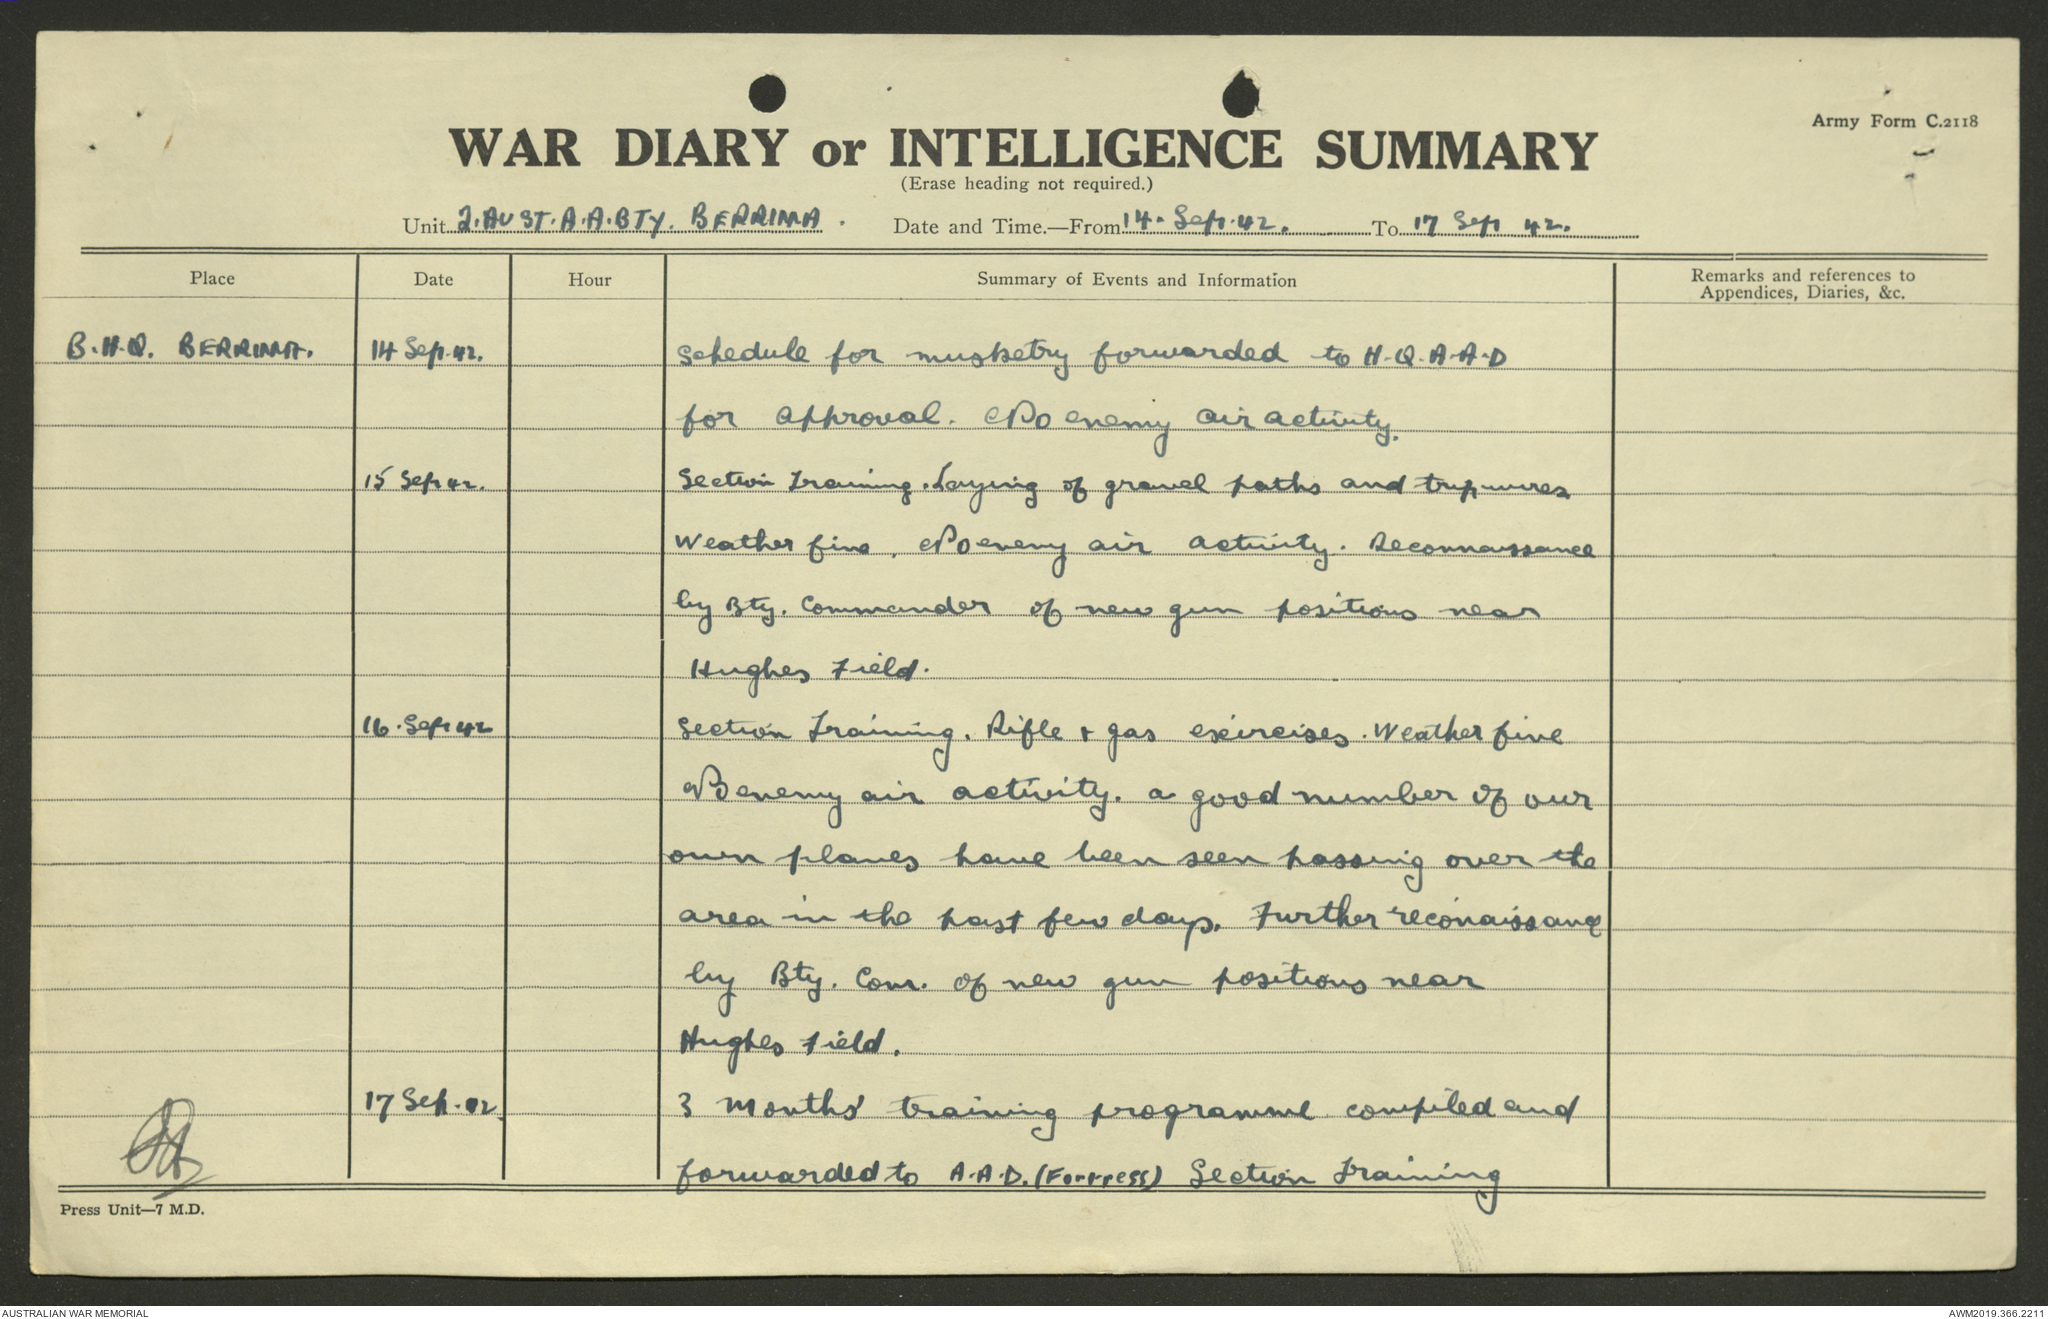 Army Form C.2118
WAR DIARY or INTELLIGENCE SUMMARY
(Erase heading not required.)
Unit 2.AUST.A.A.BTY. BERRIMA. Date and Time.—From 14. Sep.42. To 17 Sep 42.
Place Date Hour Summary of Events and Information Remarks and references to Appendices, Diaries, &c.
B.H.Q. BERRIMA. 14 Sep.42. Schedule for musketry forwarded to H.Q.A.A.D
for approval. No enemy air activity.
15 Sep 42. Section Training. Laying of gravel paths and trip-wires
Weather fine. No enemy air activity. Reconnaissance
by Bty. Commander of new gun positions near
Hughes Field.
16.Sep 42 Section Training. Rifle + gas exercises. Weather fine
No enemy air activity. A good number of our
own planes have been seen passing over the
area in the past few days. Further reconaissance
by Bty. Comr. of new gun positions near
Hughes Field.
17 Sep.42. 3 Months' training programme compiled and
forwarded to A.A.D. (Fortress) Section Training
Press Unit—7 M.D.
AUSTRALIAN WAR MEMORIAL AWM2019.366.2211